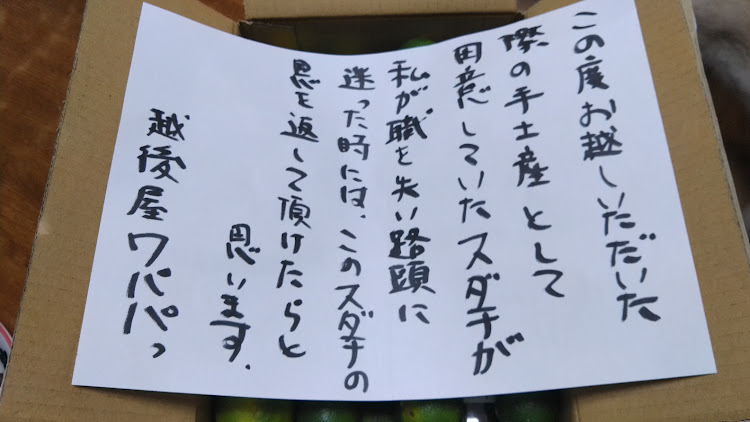 この度お越しいただいた
際の手土産として
用意していたスダチが
私が職を失い路頭に
迷った時には、このスダチの
恩を返して頂けたらと
思います。
越後屋ワパパっ